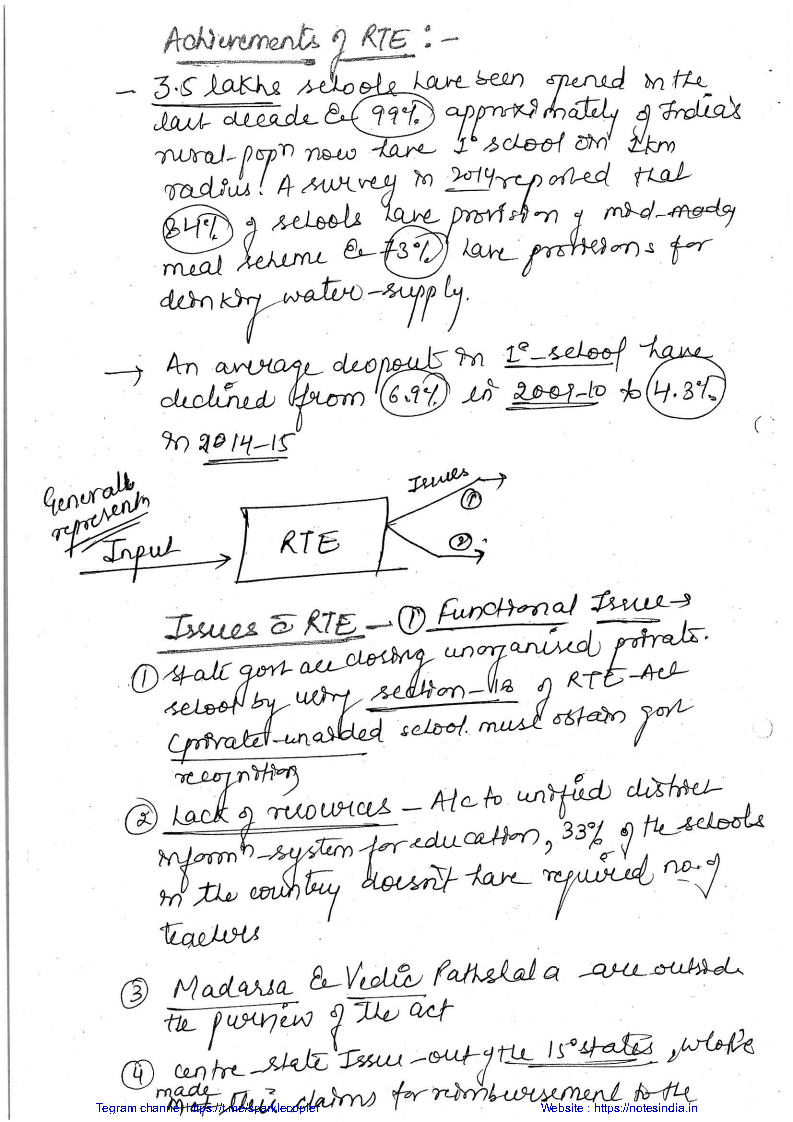 Achievements of RTE :-
- 3.5 lakhs schools have been opened in the
last decade & 99% approximately of India's
rural-popn now have 1° school in 1km
radius. A survey in 2014 reported that
84% of schools have provision of mid-mady
meal scheme & 73% have provisions for
drinking water-supply.
→ An average dropout in 1°-school have
declined from 6.9% in 2009-10 to 4.3%
in 2014-15
Generally
represents
Input
RTE
Issues
①
②
Issues c̄ RTE - ① Functional Issue→
① State govt are closing unorganised private
school by using section-18 of RTE-Act
(private-unaided school must obtain govt
recognition
② Lack of resources - A/c to unified district
informn-system for education, 33% of the schools
in the country doesn't have required no. of
teachers
③ Madarsa & Vedic Pathshala are outside
the purview of the act
④ centre-state Issue-out of the 15° states, who've
made their claims for reimbursement to the
Tegram channel https://t.me/sparklecopier
Website : https://notesindia.in